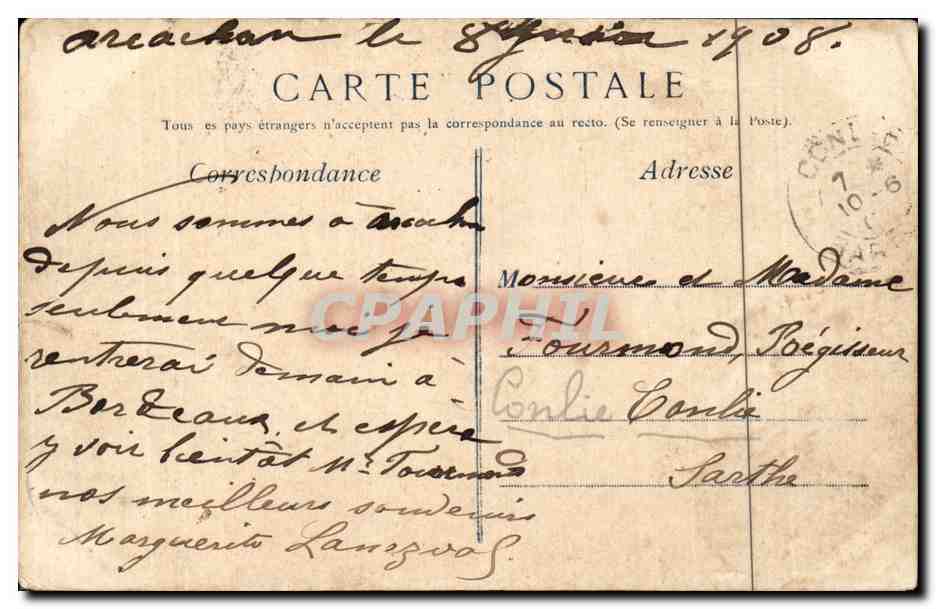 arcachon le 8 Juin 1908.
CARTE POSTALE
Tous es pays étrangers n'acceptent pas la correspondance au recto. (Se renseigner à la Poste).
Correspondance
Adresse
CONL
7
10-6
Nous sommes à arcachon
depuis quelque temps
seulement moi je
rentrerai demain à
Bordeaux et espère
y voir bientôt Mr Fourmond
nos meilleurs souvenirs
Marguerite
Monsieur et Madame
Fourmond, Régisseur
Conlie Conlie
Sarthe
CPAPHIL